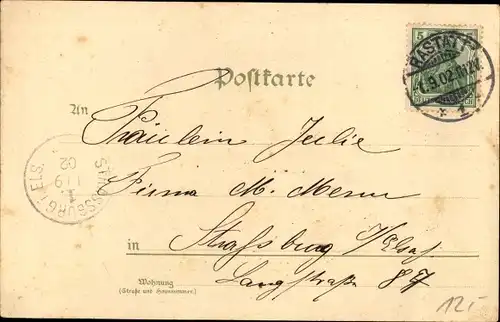 5
RASTATT
1.9.02.
* 1.
Postkarte
An
Fräulein Julie
Firma M.
STRASSBURG (ELS.
1 9
02
in Straßburg i/Elsaß
Wohnung
(Straße und Hausnummer)
Langstraße 87
12.-